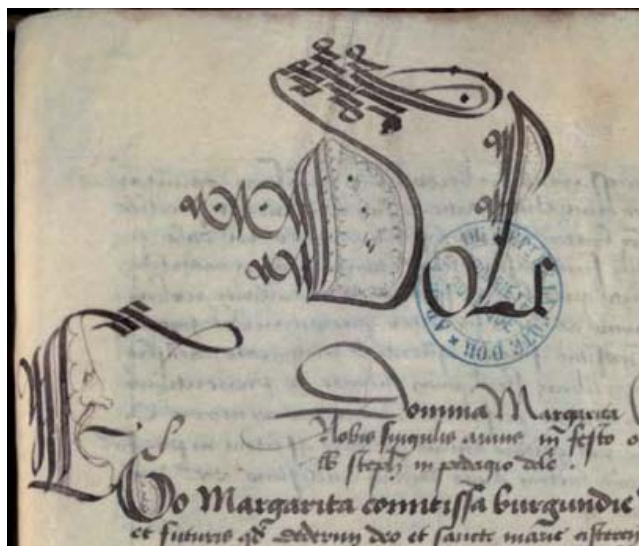 Dole
COTE D'OR
Domina Margarita
Nobis singulis annis in festo
steph in pedagio dole.
Ego Margarita comitissa burgundie
et futuris qd dederim deo et sancte marie cisterc